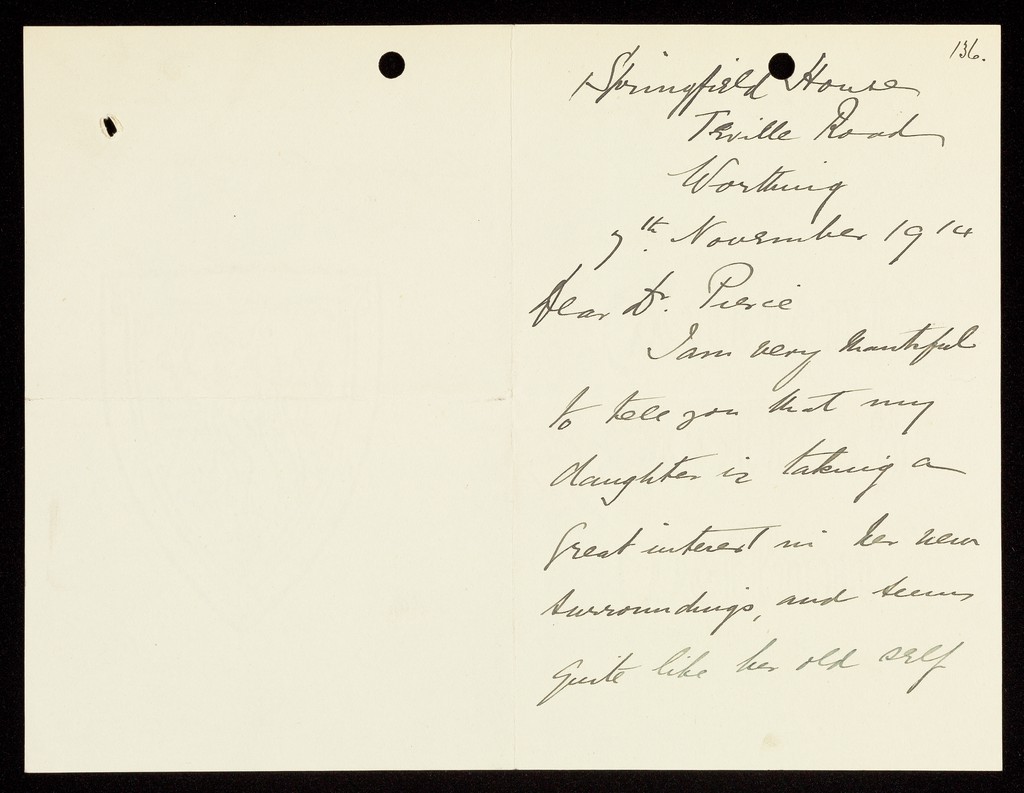 136.
Springfield House
Teville Road
Worthing
7th. November 1914
Dear Dr. Pierce
I am very thankful
to tell you that my
daughter is taking a
great interest in her new
surroundings, and seems
quite like her old self